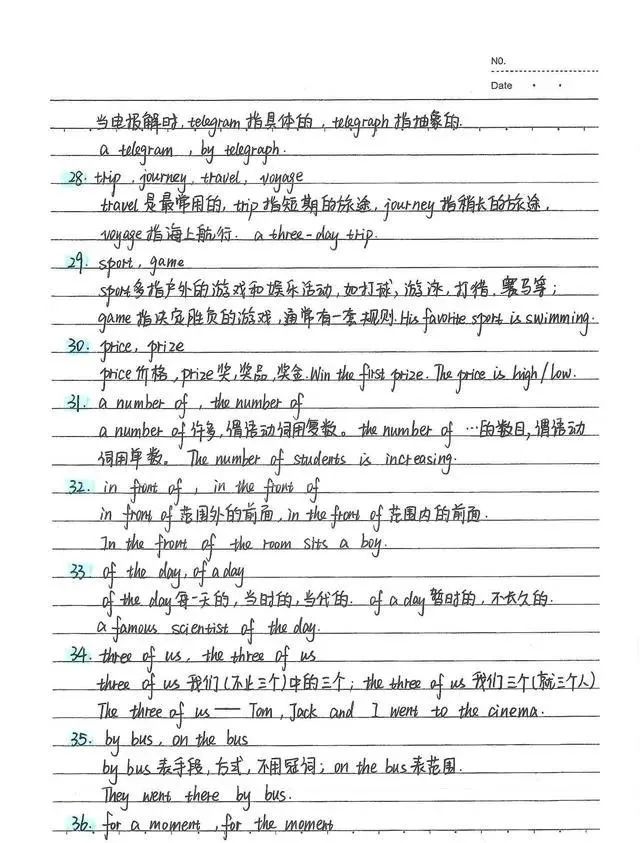 NO.
Date
当电报解时, telegram 指具体的, telegraph 指抽象的.
a telegram , by telegraph.
28. trip , journey, travel, voyage
travel 是最常用的, trip 指短期的旅途, journey 指稍长的旅途,
voyage 指海上航行. a three-day trip.
29. sport, game
sport多指户外的游戏和娱乐活动, 如打球, 游泳, 打猎, 赛马等;
game 指决定胜负的游戏, 通常有一套规则. His favorite sport is swimming.
30. price, prize
price 价格, prize 奖, 奖品, 奖金. Win the first prize. The price is high/low.
31. a number of , the number of
a number of 许多, 谓语动词用复数。the number of …的数目, 谓语动
词用单数。The number of students is increasing.
32. in front of , in the front of
in front of 范围外的前面, in the front of 范围内的前面.
In the front of the room sits a boy.
33. of the day, of a day
of the day 每一天的, 当时的, 当代的. of a day 暂时的, 不长久的.
a famous scientist of the day.
34. three of us, the three of us
three of us 我们(不止三个)中的三个; the three of us 我们三个(就三个人)
The three of us —— Tom, Jack and I went to the cinema.
35. by bus, on the bus
by bus 表手段, 方式, 不用冠词; on the bus 表范围.
They went there by bus.
36. for a moment , for the moment